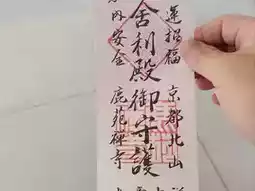 運招福 京都北山
舎利殿御守護
内安全 鹿苑禅寺